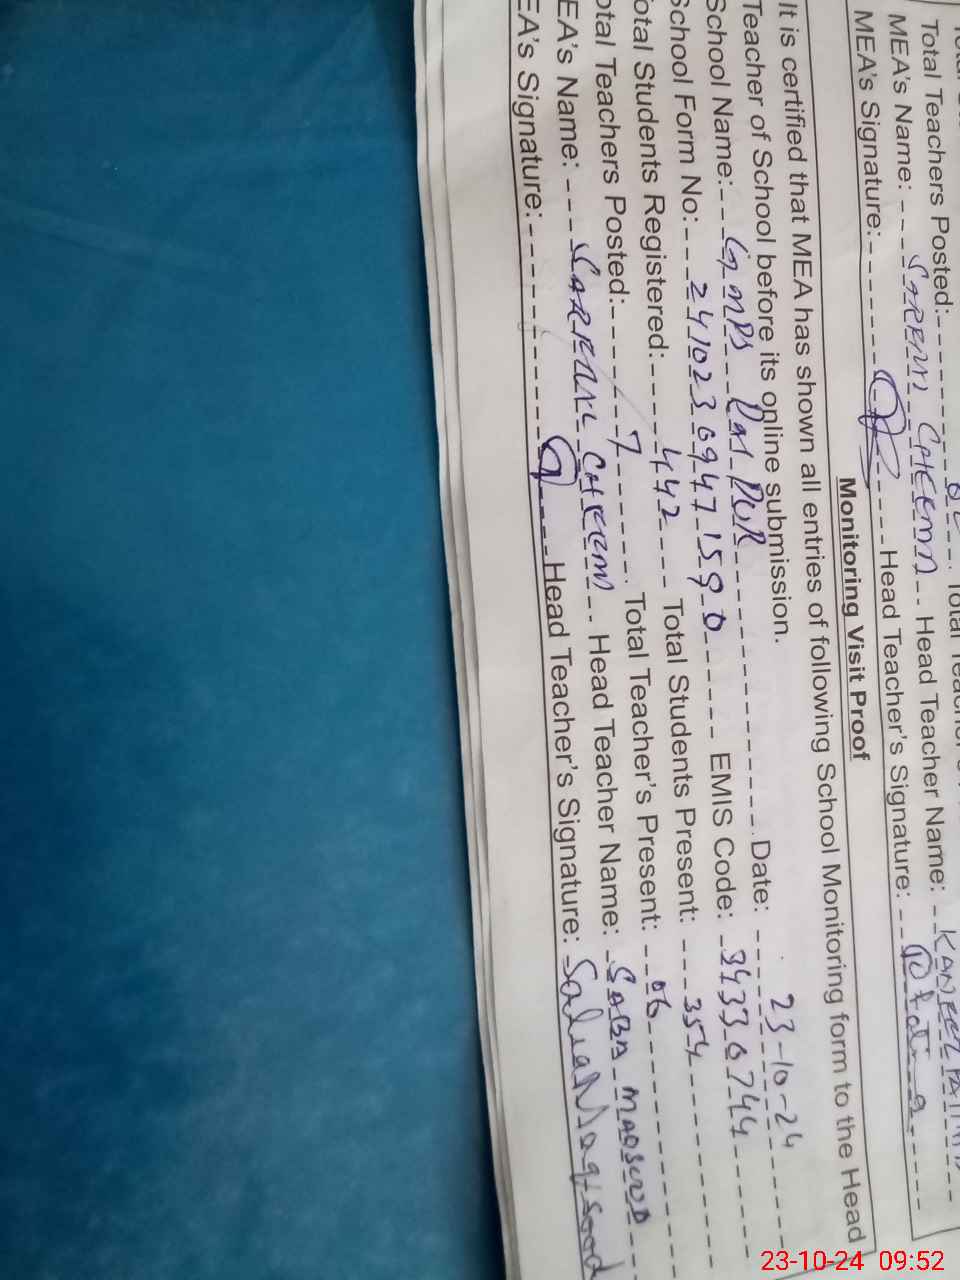 Total Teachers Posted:
MEA's Name: CHEEMA Head Teacher Name:
MEA's Signature: Head Teacher's Signature:
Monitoring Visit Proof
It is certified that MEA has shown all entries of following School Monitoring form to the Head
Teacher of School before its online submission.
School Name: GMPS Date: 23-10-24
School Form No: EMIS Code: 34330744
Total Students Registered: 442 Total Students Present: 354
Total Teachers Posted: 7 Total Teacher's Present: 06
EA's Name: CHEEMA Head Teacher Name: SABA MAQSOOD
EA's Signature: Head Teacher's Signature:
23-10-24 09:52